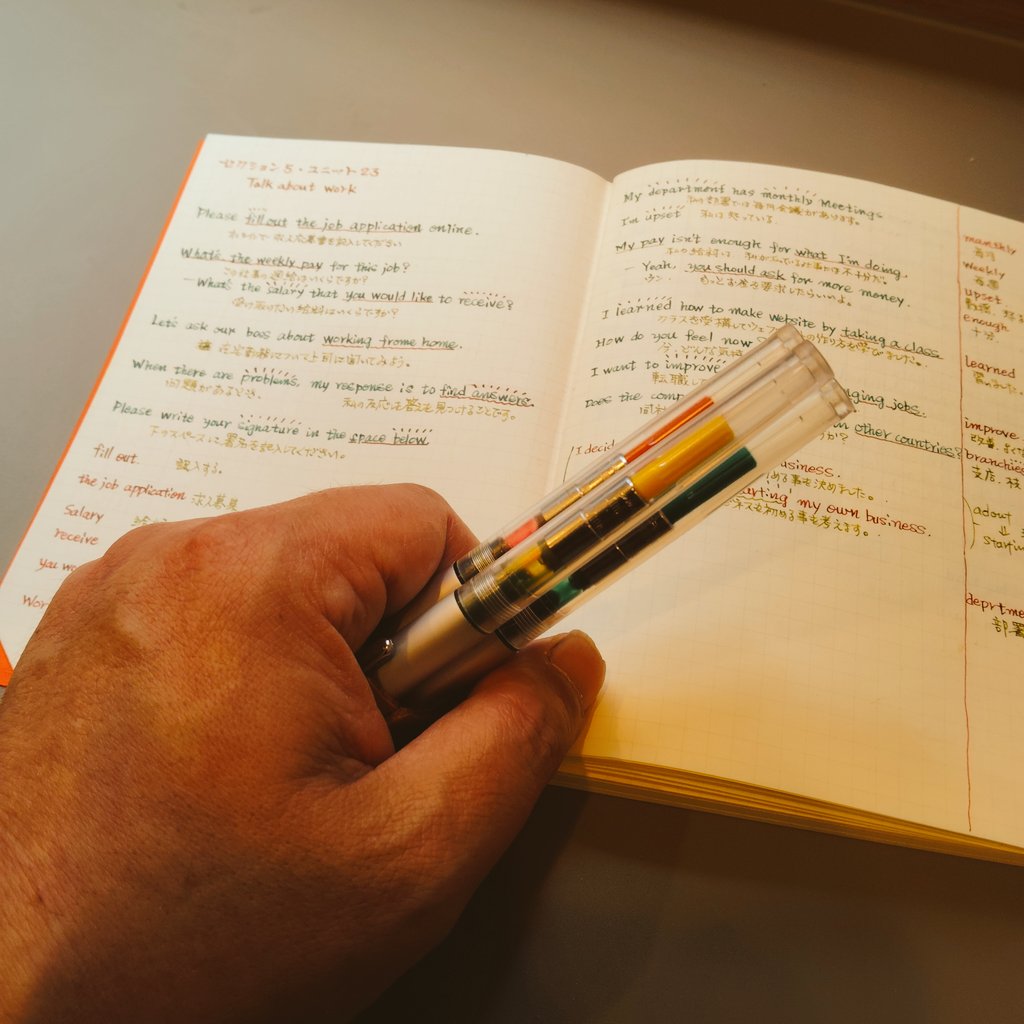 セクション5・ユニット23
Talk about work
Please fill out the job application online.
What's the weekly pay for this job?
この仕事の週給はいくらですか?
- What's the salary that you would like to receive?
受け取りたい給料はいくらですか?
Let's ask our boss about working frome home.
在宅勤務について上司に聞いてみよう。
When there are problems, my response is to find answers.
問題があるとき、
私の反応は答えを見つけることです。
Please write your signature in the space below.
下のスペースに署名を記入してください。
fill out.
記入する。
the job application 求人募集
Salary
receive
you wo
Wor
My department has monthly Meetings
私の部署では毎月会議があります。
I'm upset
私は怒っている。
My pay isn't enough for what I'm doing.
私の給料は
- Yeah, you should ask for more money.
ウン、もっとお金を要求したらいいよ。
I learned how to make website by taking a class
クラスを受講してウェブ の作り方を学びました。
How do you feel now
今、どんな気持
I want to improve
転職し
Does the comp
ging jobs.
in other countries?
か?
I decid
usiness.
める事を決めました。
arting my own business.
ネスを初める事も考えます。
monshly
毎月
weekly
毎週
upset
enough
十分
learned
improve
branchies
支店、
adout
↓
startin
deprtme
部署